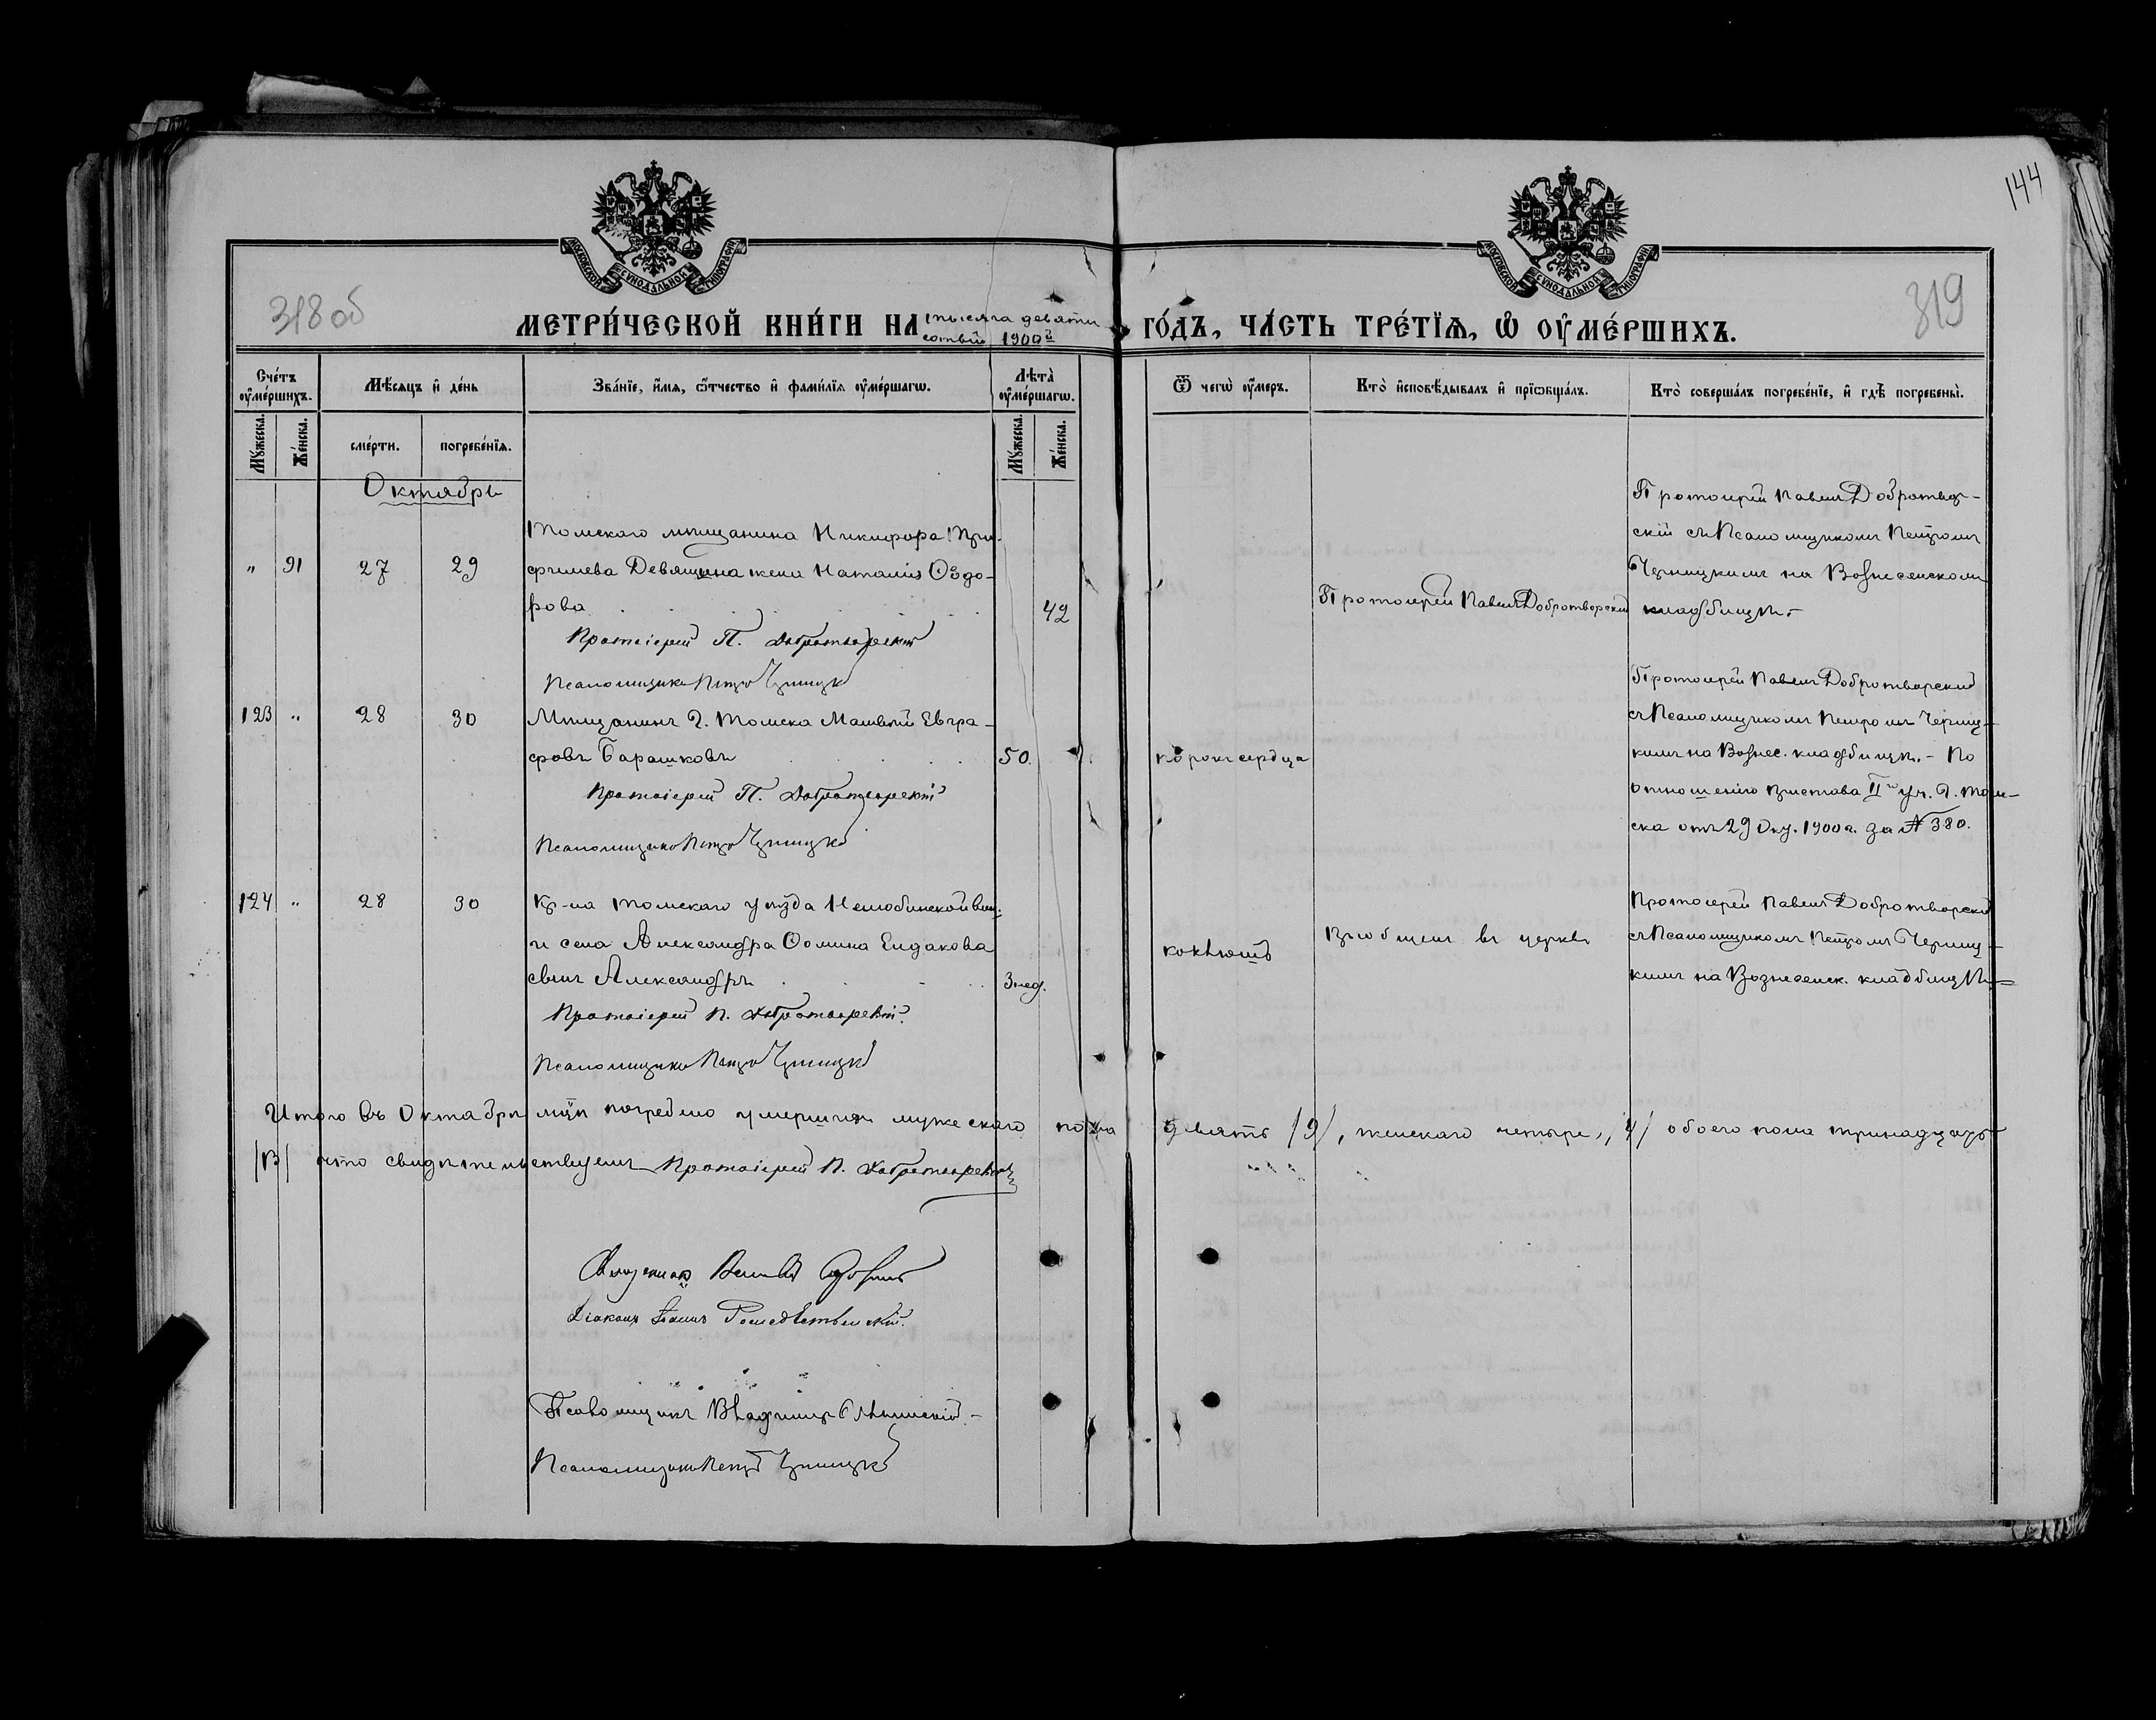 144
318 об
319
МОСКОВСКОЙ СѴНОДАЛЬНОЙ ТИПОГРАФІИ
МОСКОВСКОЙ СѴНОДАЛЬНОЙ ТИПОГРАФІИ
МЕТРИ́ЧЕСКОЙ КНИ́ГИ НА тысяча девяти
сотый 1900й
ГО́ДЪ, ЧА́СТЬ ТРЕ́ТЇѦ, Ѡ҆ ОУ҆МЕ́РШИХЪ.
Сче́тъ оу҆ме́ршихъ.
Мѣ́сяцъ и҆ де́нь
Зва́нїе, и҆́мѧ, ѻ҆́тчество и҆ фами́лїѧ оу҆ме́ршагѡ.
Лѣта̀ оу҆ме́ршагѡ.
Ѿ чегѡ̀ оу҆́меръ.
Кто̀ и҆сповѣ́дывалъ и҆ прїѡбща́лъ.
Кто̀ соверша́лъ погребе́нїе, и҆ гдѣ̀ погребены̀.
Мꙋ́жеска.
Же́нска.
сме́рти.
погребе́нїѧ.
Мꙋ́жеска.
Же́нска.
Октябрь
" 91 27 29
Томскаго мѣщанина Никифора
Девящина жена Наталія Ѳедо-
рова 42
Протоіерей П. Добротворскій
Псаломщикъ Петръ Черницкій
Протоіерей Павелъ Добротворскій
Протоіерей Павелъ Добротвор-
скій съ Псаломщикомъ Петромъ
Черницкимъ на Вознесенскомъ
кладбищѣ.
123 " 28 30
Мѣщанинъ г. Томска Матвѣй Евгра-
фовъ Барашковъ 50.
Протоіерей П. Добротворскій
Псаломщикъ Петръ Черницкій
порокъ сердца
Протоіерей Павелъ Добротворскій
съ Псаломщикомъ Петромъ Черниц-
кимъ на Вознес. кладбищѣ. - По
отношенію пристава II го уч. г. Том-
ска отъ 29 Окт. 1900 г. за № 380.
124 " 28 30
Кр-на Томскаго уѣзда Нелюбинской вол.
и села Александра Ѳомина Елдакова
сынъ Александръ 3 нед.
Протоіерей П. Добротворскій.
Псаломщикъ Петръ Черницкій
коклюшъ
Пріобщенъ въ церкви
Протоіерей Павелъ Добротворскій
съ Псаломщикомъ Петромъ Черниц-
кимъ на Вознесенск. кладбищѣ
Итого въ Октябрѣ мѣс. погребено умершихъ мужескаго пола девять /9/, женскаго четыре, /4/ обоего пола тринадцать
/13/ что свидѣтельствуемъ Протоіерей П. Добротворскій
Священникъ
Діаконъ Іоаннъ Рождественскій.
Псаломщикъ Владиміръ
Псаломщикъ Петръ Черницкій